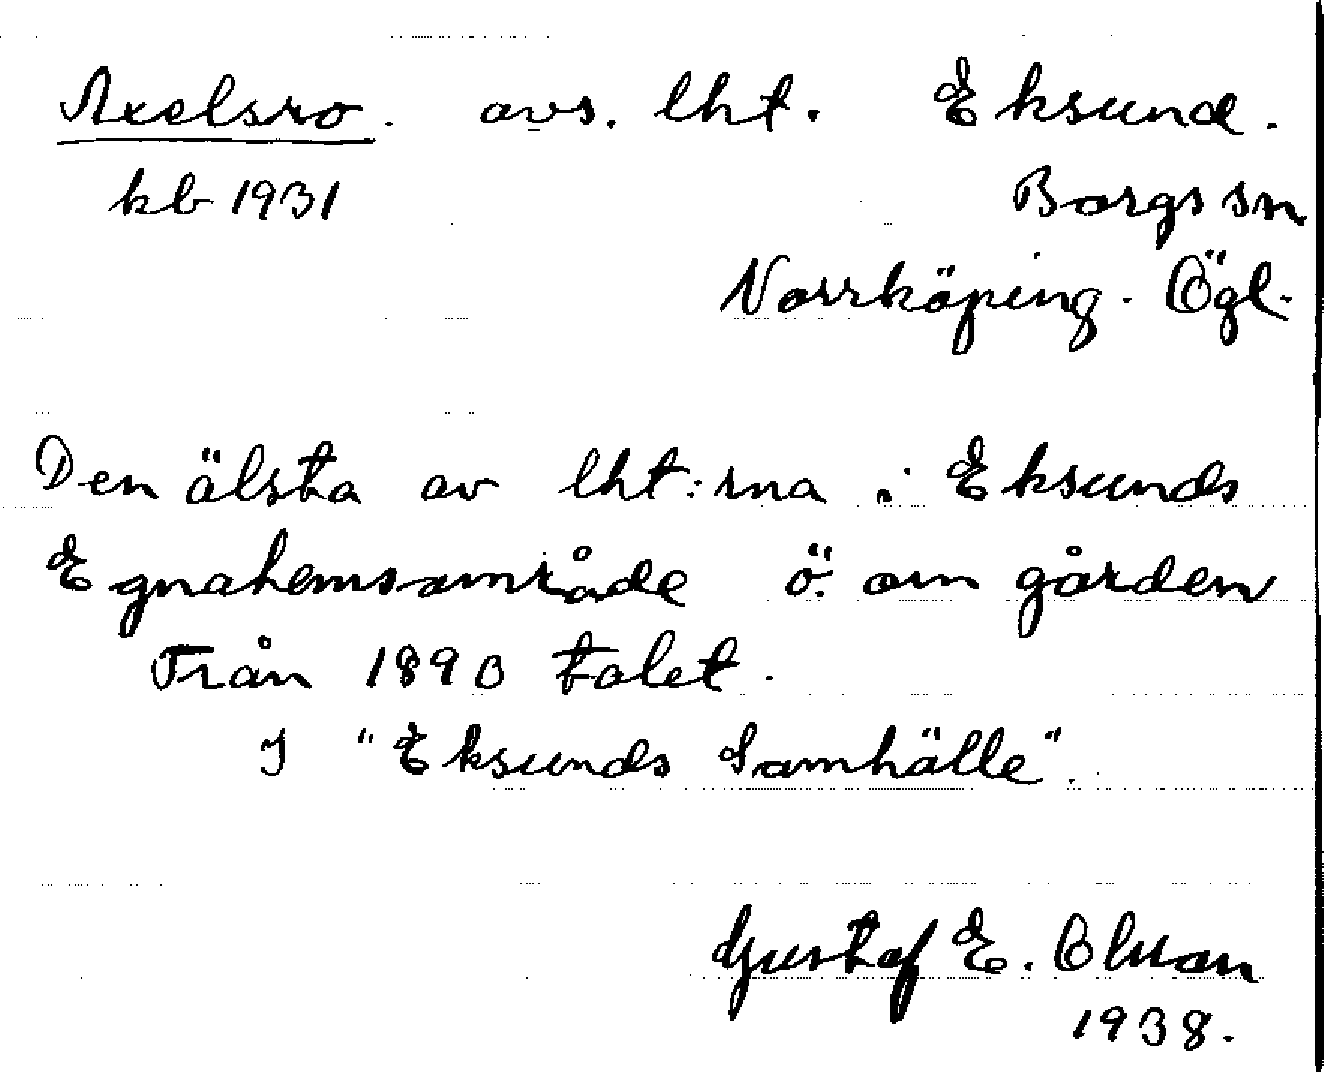 Axelsro. avs. lht. Eksund.
kb 1931 Borgs sn
Norrköping. Ögl.
Den älsta av lht:rna i Eksunds
Egnahemsområde ö. om gården
Från 1890 talet.
I "Eksunds Samhälle".
Gustaf E. Olsson
1938.